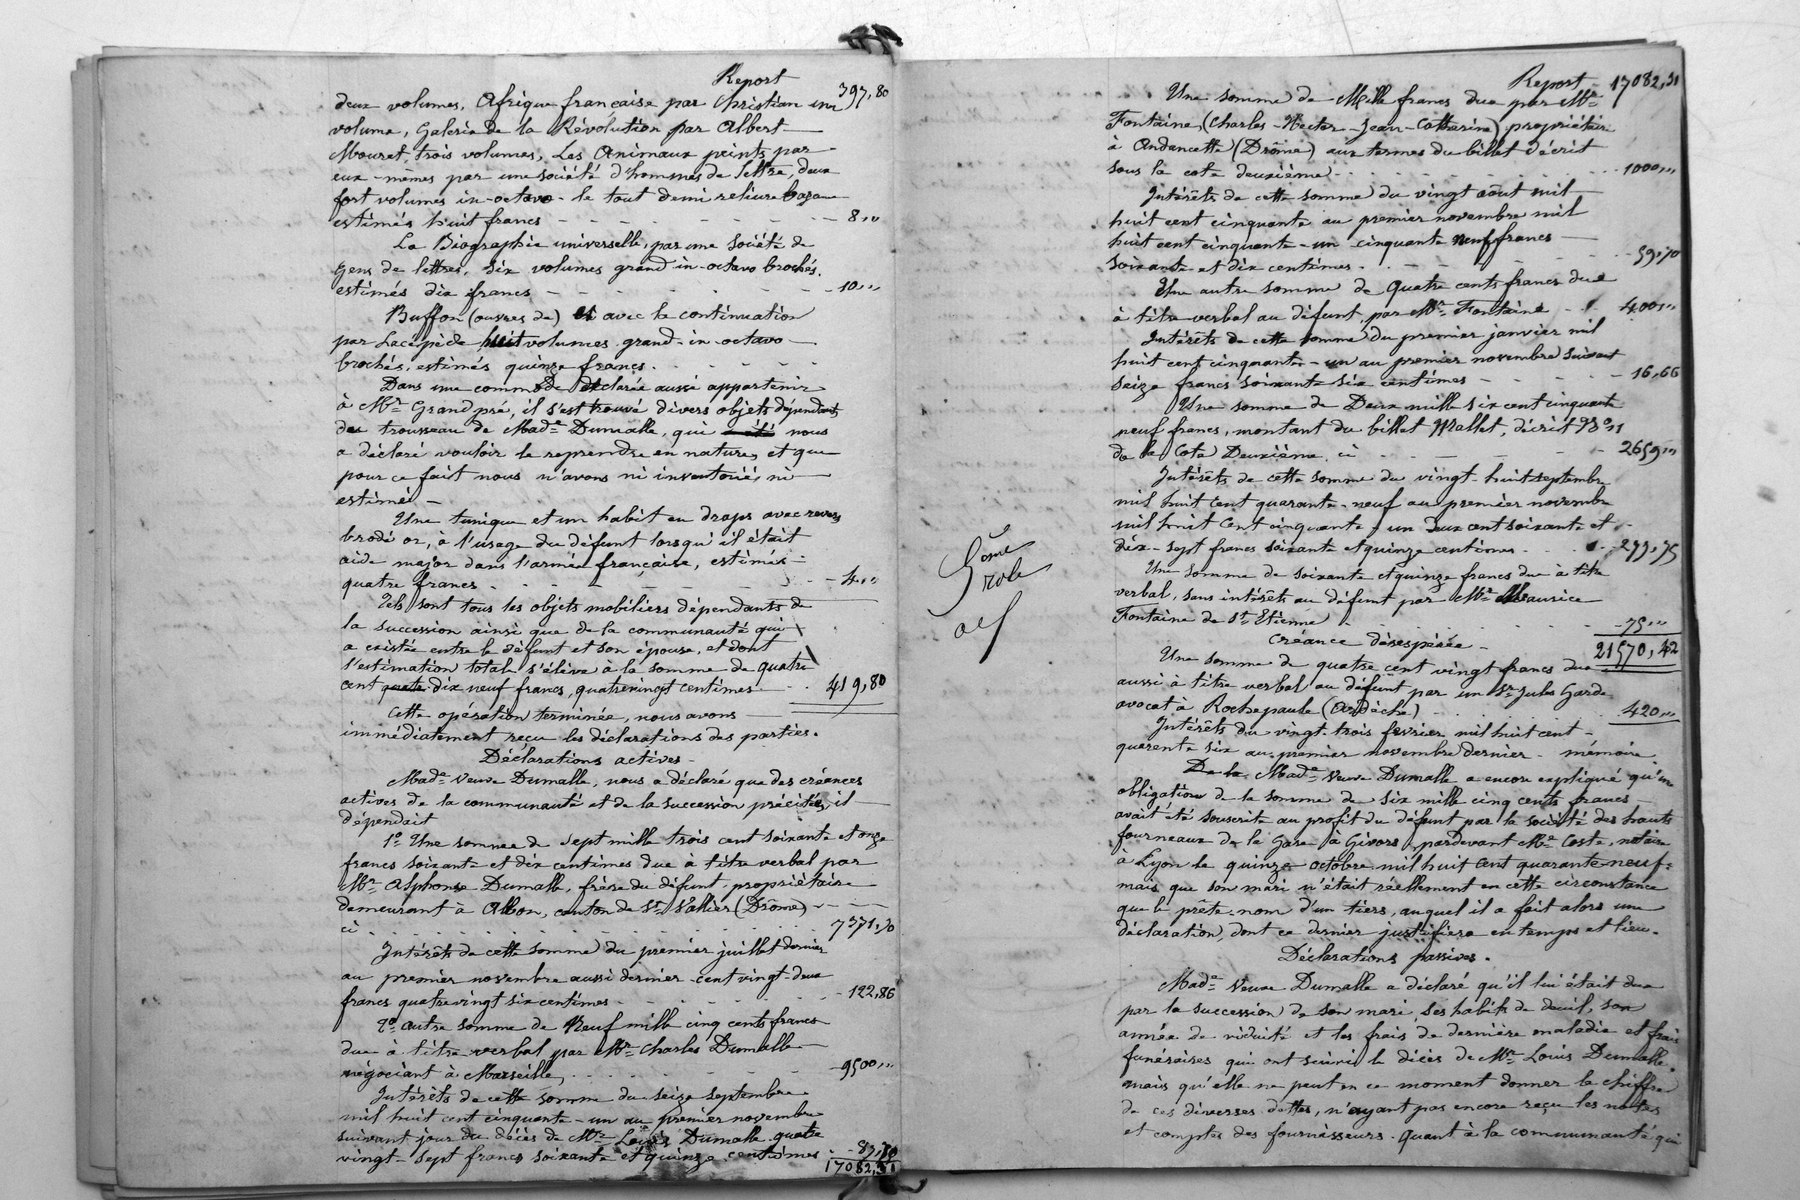 Report 397,80
deux volumes, Afrique française par Christian un
volume, Galerie de la Révolution par Albert
Mouret trois volumes, Les Animaux peints par
eux-mêmes par une société d'hommes de lettre, deux
fort volumes in-octavo - le tout demi reliure bazane
estimés huit francs 8,,,
La Biographie universelle, par une société de
gens de lettres, six volumes grand in-octavo brochés,
estimés dix francs 10,,,
Buffon (œuvres de) et avec la continuation
par Lacepède huit volumes grand-in-octavo
brochés, estimés quinze francs.
Dans une commode déclarée aussi appartenir
à Mr Grandpré, il s'est trouvé divers objets dépendants
du trousseau de Made Dumalle, qui a été nous
a déclaré vouloir le reprendre en nature, et que
pour ce fait nous n'avons ni inventorié, ni
estimés -
Une tunique et un habit en draps avec revers
brodé or, à l'usage du défunt lorsqu'il était
aide major dans l'armée française, estimés
quatre francs 4,,,
Tels sont tous les objets mobiliers dépendants de
la succession ainsi que de la communauté qui
a existée entre le défunt et son épouse, et dont
l'estimation total s'élève à la somme de quatre
cent quatre dix neuf francs, quatrevingt centimes 419,80
Cette opération terminée, nous avons
immédiatement reçu les déclarations des parties.
Déclarations actives -
Made Veuve Dumalle, nous a déclaré que des créances
actives de la communauté et de la succession précitées, il
dépendait
1o Une somme de sept mille trois cent soixante et onze
francs soixante et dix centimes due à titre verbal par
Mr Alphonse Dumalle, frère du défunt, propriétaire
demeurant à Albon, canton de St Vallier (Drôme)
ci 7371,70
Intérêts de cette somme du premier juillet dernier
au premier novembre aussi dernier cent vingt-deux
francs quatrevingt six centimes 122,86
2o autre somme de Neuf mille cinq cents francs
due à titre verbal par Mr Charles Dumalle
négociant à Marseille, 9500,,,
Intérêts de cette somme du seize septembre
mil huit cent cinquante-un au premier novembre
suivant jour du décès de Mr Louis Dumalle quatre
vingt-sept francs soixante et quinze centimes 87,75
17082,31
5ème
role
Report 17082,31
Une somme de Mille francs due par Mr
Fontaine, (Charles-Hector-Jean-Catherine) propriétaire
à Andancette (Drôme) aux termes du billet décrit
sous la cote deuxième 1000,,,
Intérêts de cette somme du vingt août mil
huit cent cinquante au premier novembre mil
huit cent cinquante-un cinquante neuf francs
soixante et dix centimes 59,70
Une autre somme de quatre cents francs due
à titre verbal au défunt par Mr Fontaine 400,,,
Intérêts de cette somme du premier janvier mil
huit cent cinquante-un au premier novembre suivant
seize francs soixante six centimes 16,66
Une somme de Deux mille six cent cinquante
neuf francs, montant du billet Mallet, décrit No 11
de la Cote Deuxième ci 2659,,,
Intérêts de cette somme du vingt-huit septembre
mil huit cent quarante-neuf au premier novembre
mil huit cent cinquante-un deux cent soixante et
dix-sept francs soixante et quinze centimes 277,75
Une somme de soixante et quinze francs due à titre
verbal, sans intérêts au défunt par Mr Maurice
Fontaine de St Etienne 75,,,
21570,42
Créance désespérée -
Une somme de quatre cent vingt francs due
aussi à titre verbal au défunt par un Sr Jules Garde
avocat à Rochepaule (Ardèche) 420,,,
Intérêts du vingt-trois fevrier mil huit cent
quarente six au premier novembre dernier mémoire.
De la Made Veuve Dumalle a encore expliqué qu'une
obligation de la somme de six mille cinq cents francs
avait été souscrite au profit du défunt par la société des hauts
fourneaux de la Gare à Givors, pardevant Me Coste, notaire
à Lyon le quinze octobre mil huit cent quarante-neuf
mais que son mari n'était réellement en cette circonstance
que le prête-nom d'un tiers, auquel il a fait alors une
déclaration, dont ce dernier justifiera en temps et lieu.
Déclarations passives.
Made Veuve Dumalle a déclaré qu'il lui était due
par la succession de son mari, ses habits de deuil, son
année de viduité et les frais de dernière maladie et frais
funéraires qui ont suivi le décès de Mr Louis Dumalle,
mais qu'elle ne peut en ce moment donner le chiffre
de ces diverses dettes, n'ayant pas encore reçu les notes
et comptes des fournisseurs. Quant à la communauté qui